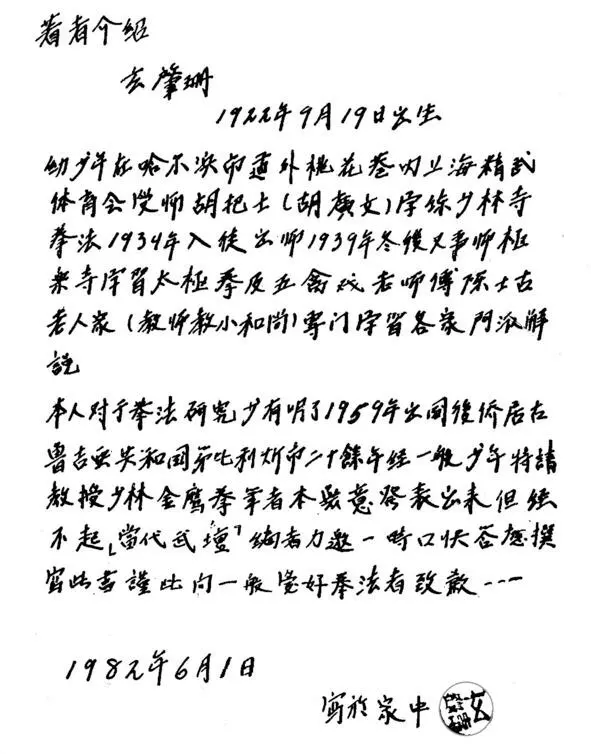 著者介紹
玄肇珊
1922年9月19日出生
幼少年在哈尔浜市道外桃花巷内上海精武
体育会受师胡把士(胡廣文)学练少林寺
拳法1934年入徒出师1939年冬後又事师極
楽寺学習太極拳及五禽戏老师傅陈士古
老人家(教师教小和尚)専门学習各家門派解
説
本人对于拳法研究少有明了1959年出国後侨居在
魯吉亜共和国第比利斯市二十餘年経一般少年特請
教授少林金鹰拳筆者本無意發表出来但経
不起「當代武壇」編者力邀一時口快答應撰
寫此書謹此向一般愛好拳法者致歉……
1982年6月1日
寫於家中